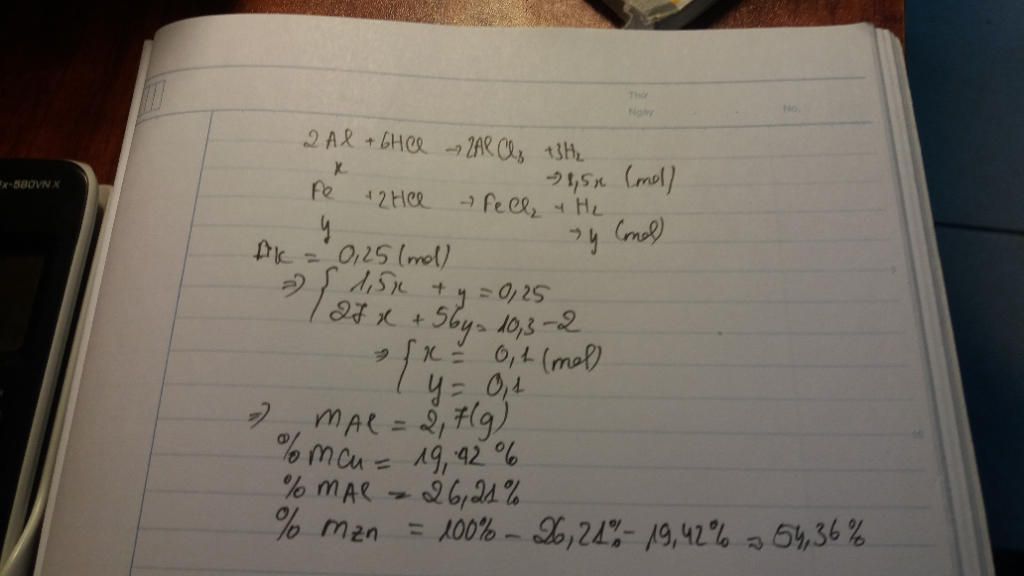 fx-580VN X
Thứ
Ngày
No.
2Al + 6HCl → 2AlCl₃ + 3H₂
x → 1,5x (mol)
Fe + 2HCl → FeCl₂ + H₂
y → y (mol)
= 0,25 (mol)
=> { 1,5x + y = 0,25
27x + 56y = 10,3 - 2
=> { x = 0,1 (mol)
y = 0,1
=> mAl = 2,7(g)
% mCu = 19,42%
% mAl = 26,21%
% mZn = 100% - 26,21% - 19,42% = 54,36%